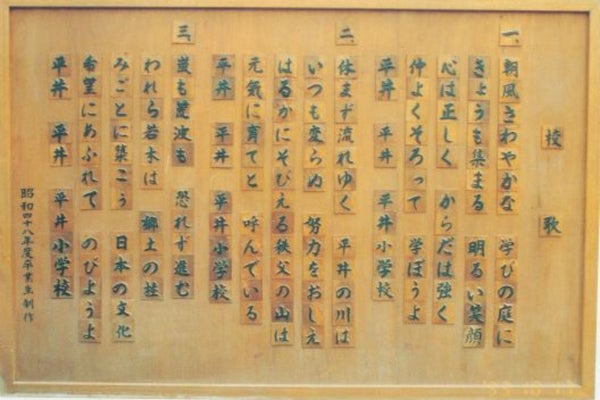 校歌
一、朝風さわやかな 学びの庭に
きょうも集まる 明るい笑顔
心は正しく からだは強く
仲よくそろって 学ぼうよ
平井 平井 平井小学校
二、休まず流れゆく 平井の川は
いつも変らぬ 努力をおしえ
はるかにそびえる秩父の山は
元気に育てと 呼んでいる
平井 平井 平井小学校
三、嵐も荒波も 恐れず進む
われら若木は 郷土の柱
みごとに築こう 日本の文化
希望にあふれて のびようよ
平井 平井 平井小学校
昭和四十八年度卒業生制作